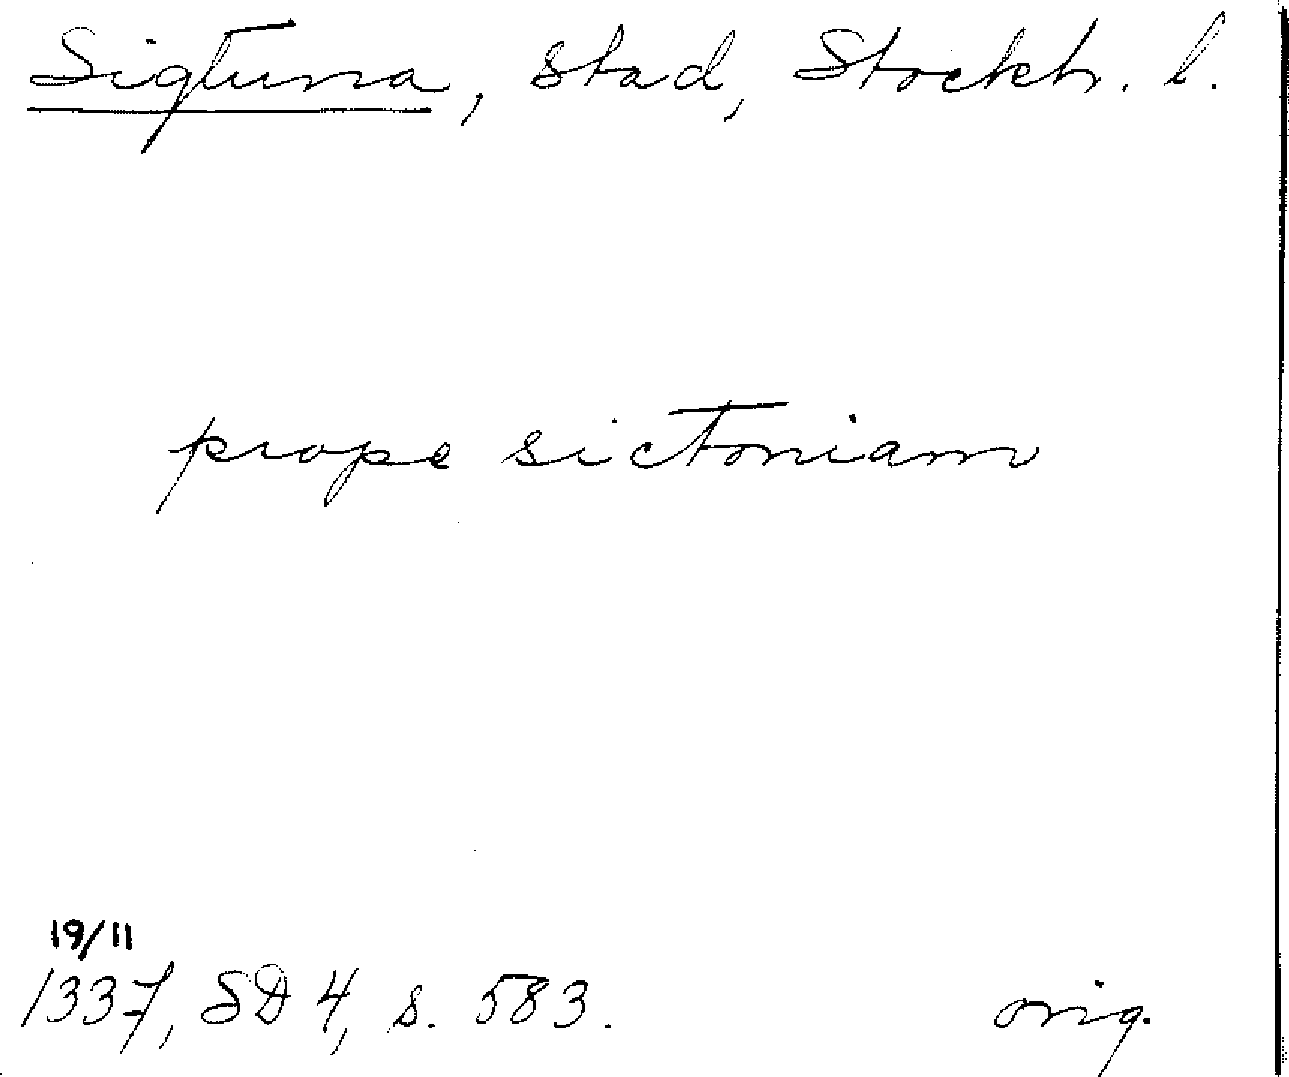 Sigtuna, stad, Stockh. l.
prope sictoniam
19/11
1337, SD 4, s. 583. orig.